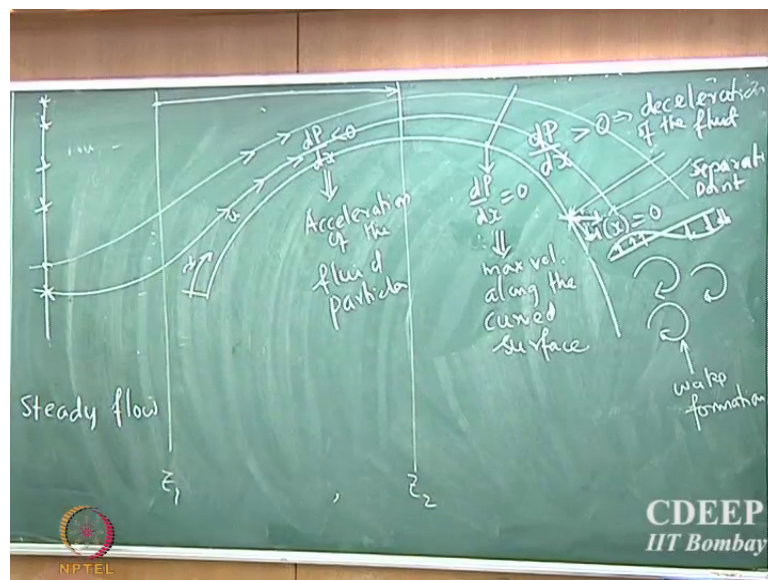 dP/dx < 0
⇓
Acceleration
of the
fluid
particle
dP/dx = 0
⇓
max vel.
along the
curved
surface
dP/dx > 0 → deceleration
of the fluid
separati
point
(x) = 0
wake
formation
Steady flow
Z1 , Z2
NPTEL
CDEEP
IIT Bombay